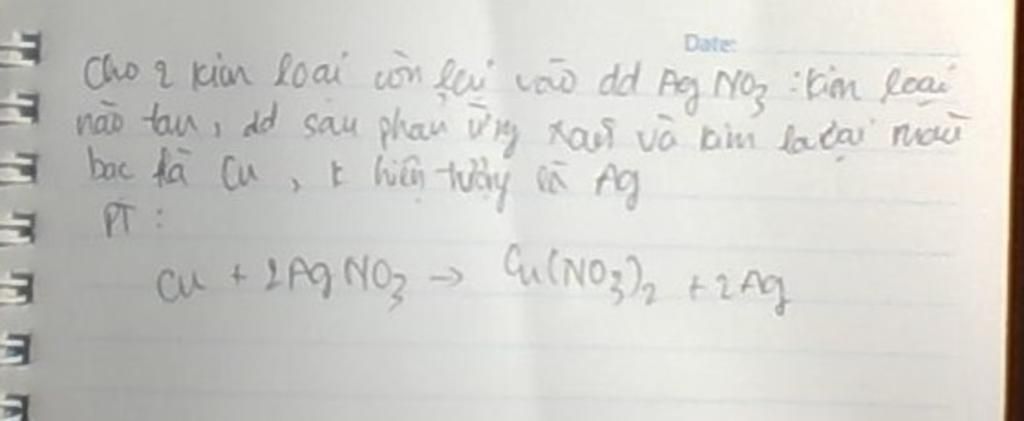 Date:
Cho 2 kim loại còn lại vào dd AgNO3 : kim loại
nào tan, dd sau phản ứng xanh và kim loại màu
bạc là Cu, k hiện tượng là Ag
PT :
Cu + 2AgNO3 → Cu(NO3)2 + 2Ag